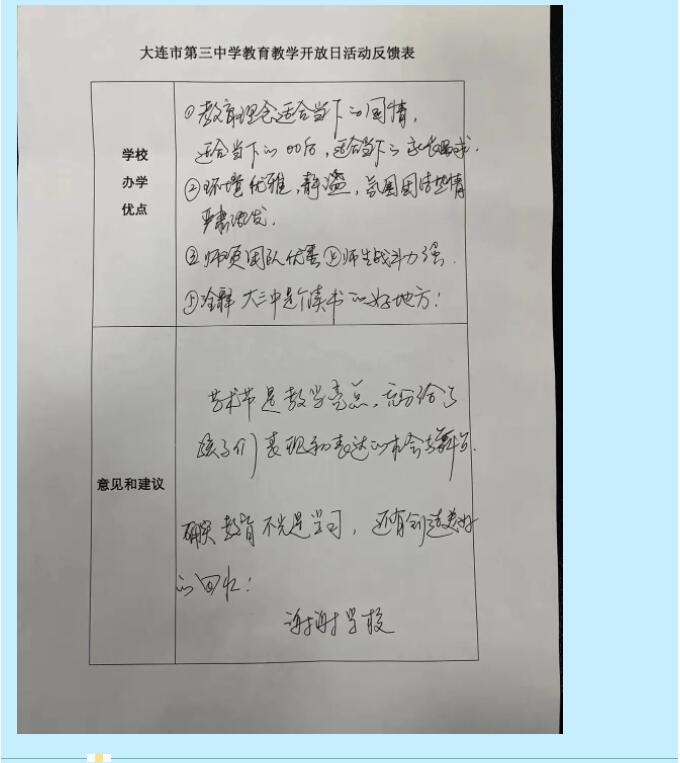 大连市第三中学教育教学开放日活动反馈表
学校
办学
优点
①教育理念适合当下的国情，
适合当下的00后，适合当下的家长需求.
②环境优雅，静谧，氛围团结热情
严肃活泼.
③师资团队优秀④师生战斗力强.
⑤诠释大三中是个读书的好地方！
意见和建议
艺术节是教学亮点，充分给了
孩子们表现和表达的机会与舞台.
确实教育不光是学习，还有创造美好
的回忆！
谢谢学校